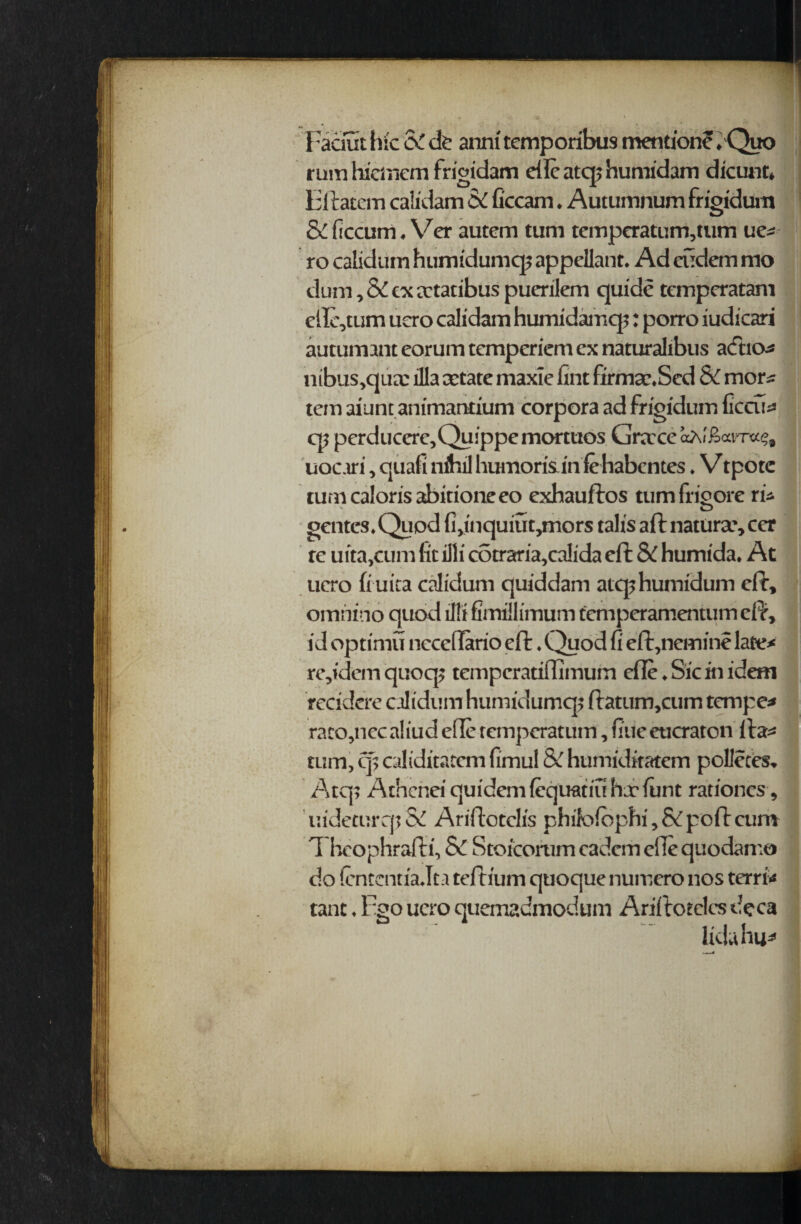 Faciūt hic & de anni temporibus mentionē. Quo
rum hiemem frigidam esse atq; humidam dicunt.
Estatem calidam & siccam. Autumnum frigidum
& siccum. Ver autem tum temperatum, tum ue-
ro calidum humidumq; appellant. Ad eūdem mo
dum, & ex ætatibus puerilem quidē temperatam
esse, tum uero calidam humidamq;: porro iudicari
autumant eorum temperiem ex naturalibus actio-
nibus, quæ illa ætate maxīe sint firmæ. Sed & mor-
tem aiunt animantium corpora ad frigidum siccū-
q; perducere, Quippe mortuos Græce ἀλίβαντας,
uocari, quasi nihil humoris in se habentes. Vtpote
tum caloris abitione eo exhaustos tum frigore ri-
gentes. Quod si, inquiūt, mors talis ast naturæ, cer
te uita, cum sit illi cōtraria, calida est & humida. At
uero si uita calidum quiddam atq; humidum est,
omnino quod illi simillimum temperamentum est,
id optimū necessario est. Quod si est, neminē late-
re, idem quoq; temperatissimum esse. Sic in idem
recidere calidum humidumq; statum, cum tempe-
rato, nec aliud esse temperatum, siue eucraton sta-
tum, q̄; caliditatem simul & humiditatem pollētes.
Atq; Athenei quidem sequatiū hæ sunt rationes,
uideturq; & Aristotelis philosophi, & post eum
Theophrasti, & Stoicorum eadem esse quodamo
do sententia. Ita testium quoque numero nos terri-
tant. Ego uero quemadmodum Aristoteles de ca
lida hu-